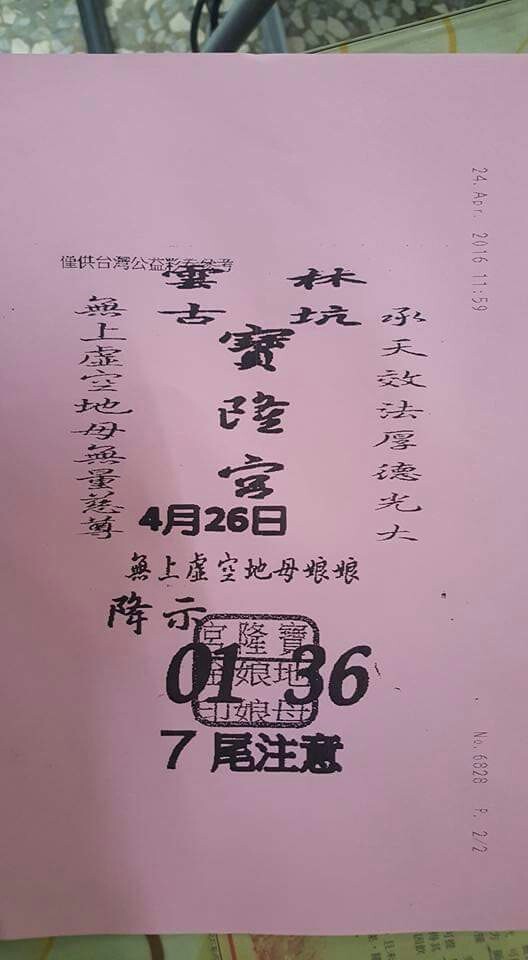 24.Apr. 2016 11:59
僅供台灣公益彩券參考
雲林
古坑
寶隆宮
承天效法厚德光大
無上虛空地母無量慈尊
4月26日
無上虛空地母娘娘
降示
寶隆宮
地娘
母娘印
01 36
7 尾注意
No.6828 P. 2/2